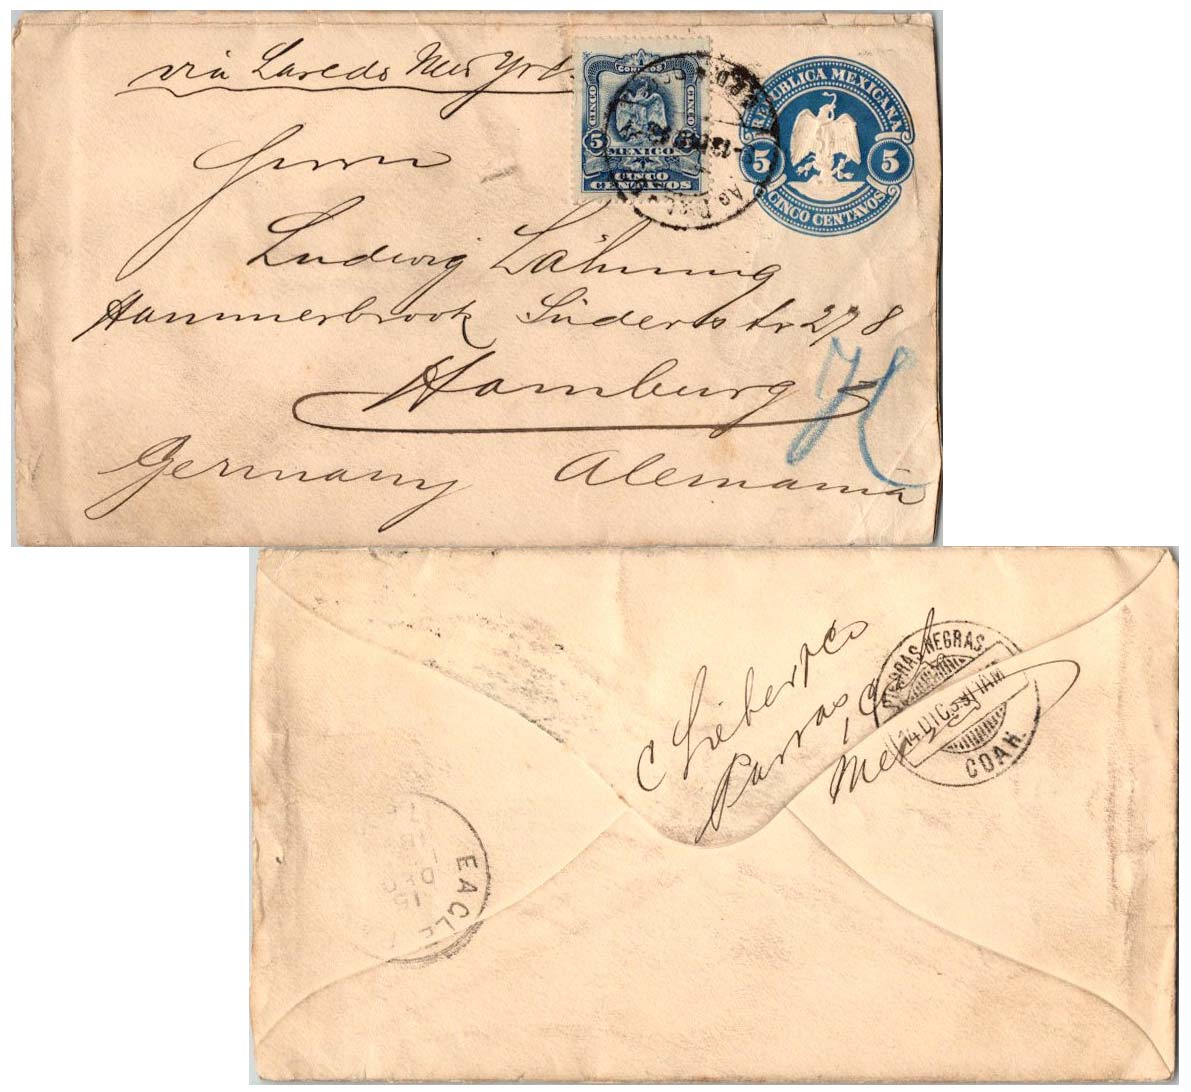 via Laredo New York
CORREOS
CINCO
CINCO
5
5
MEXICO
CINCO
CENTAVOS
REPUBLICA MEXICANA
5
5
CINCO CENTAVOS
Herrn
Ludwig Lähning
Hammerbrook Süderstr 27, 8
Hamburg
Germany Alemania
C Lieber & Co
Parras, C
Mex
PIEDRAS NEGRAS
14 DIC
COAH.
EAGLE